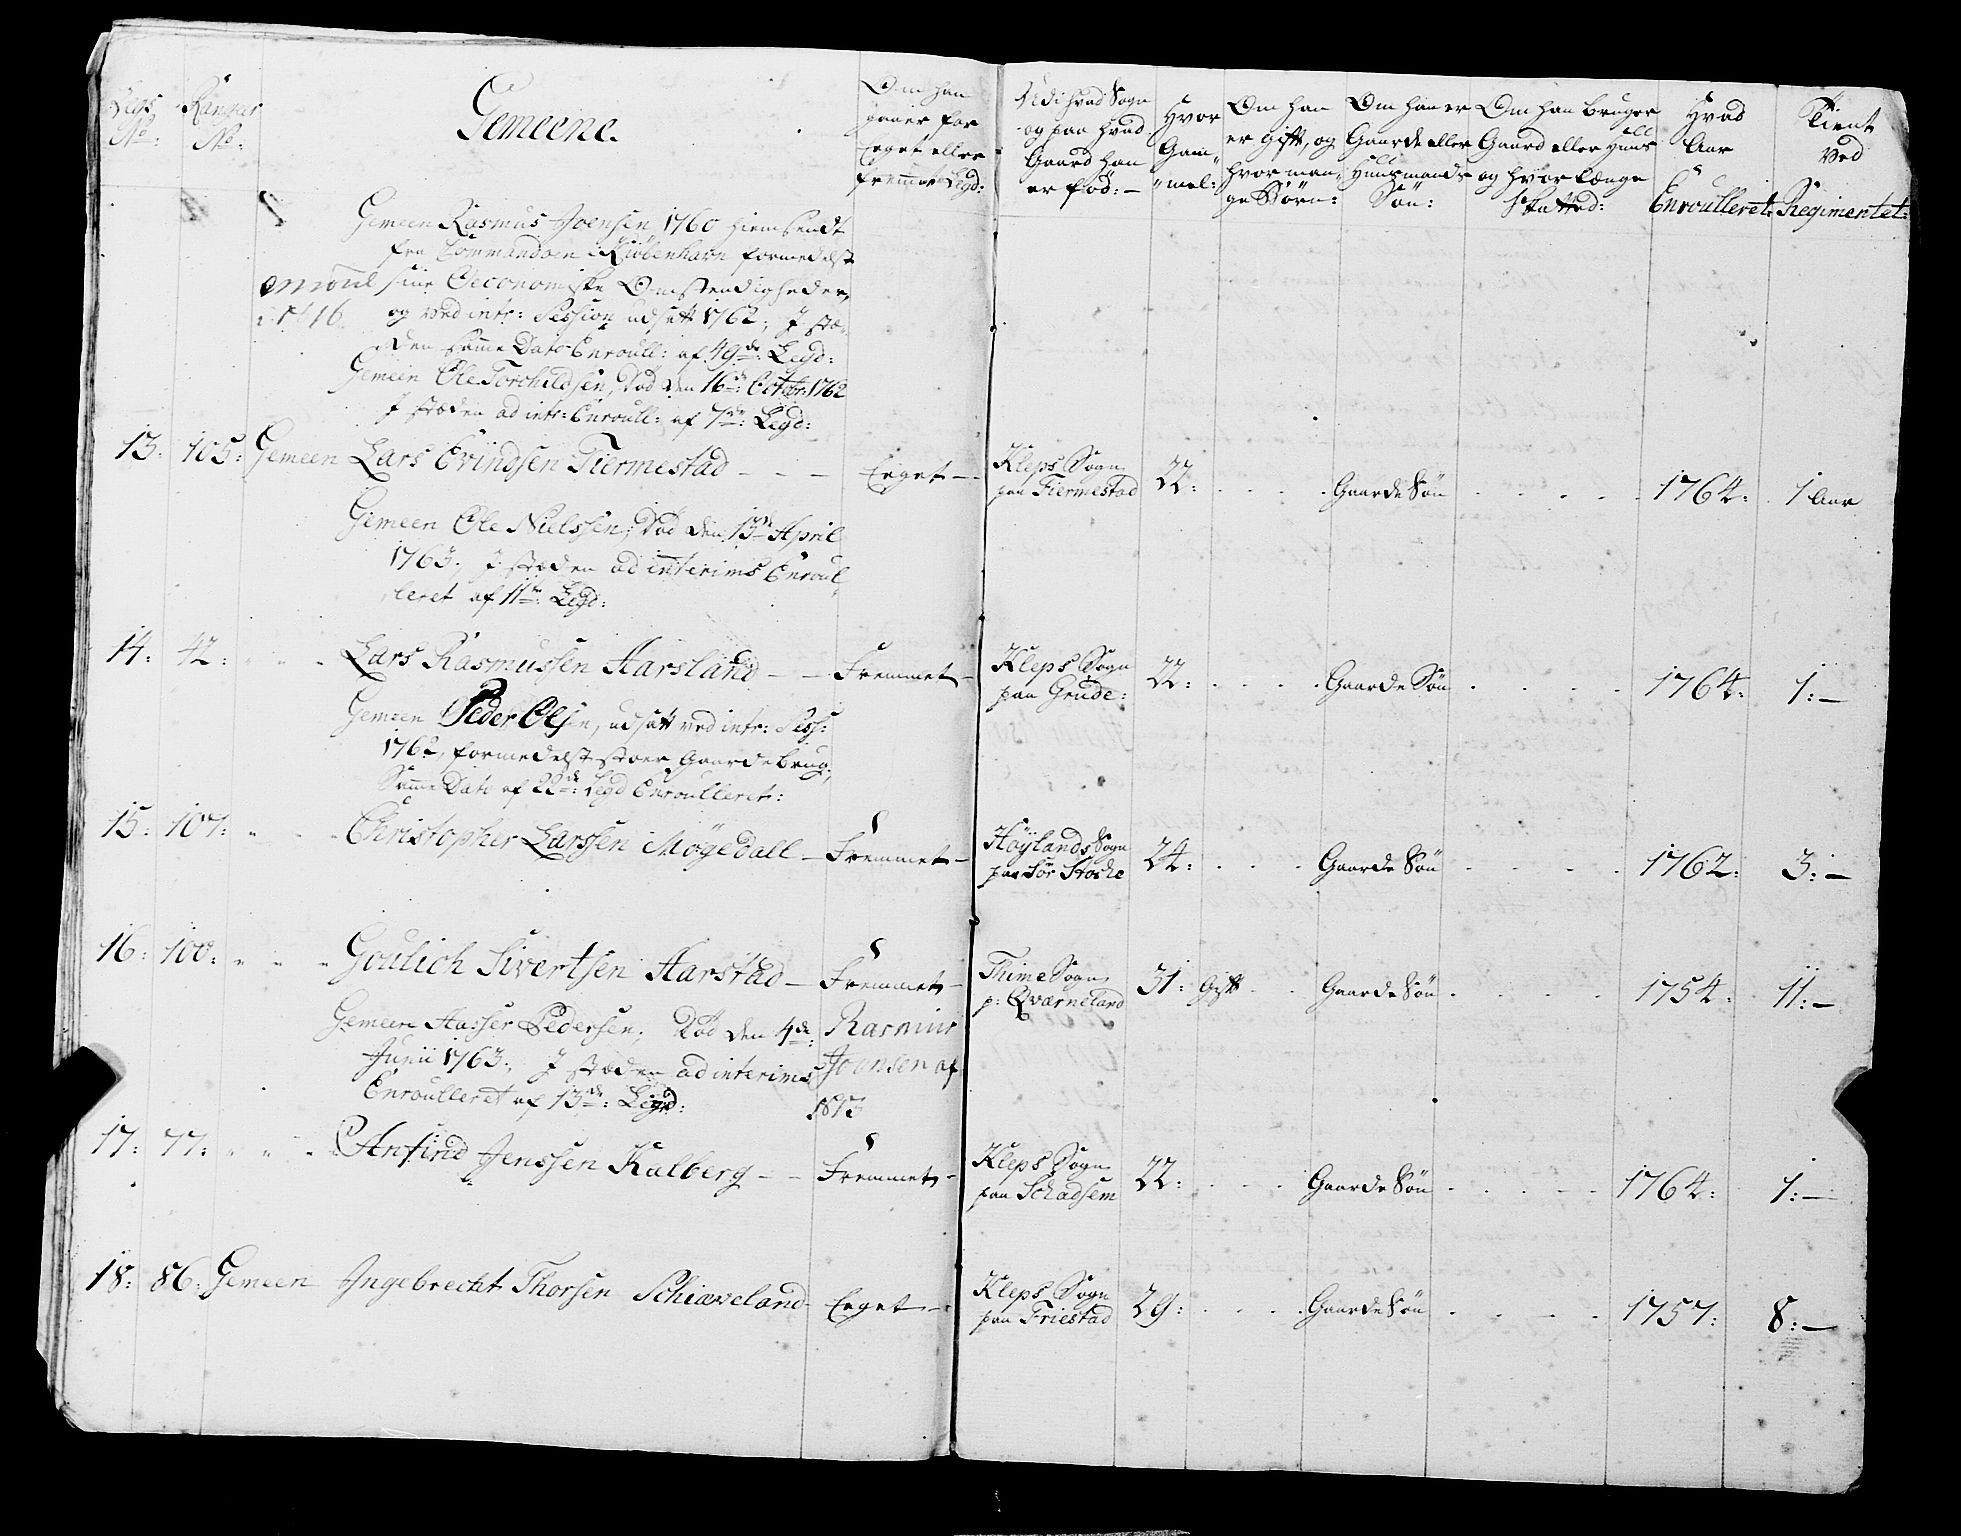 Legs No:
Ranger No:
Gemeene.
Om han
gaaer for
Eeget eller
fremmet Legd:
Udi hvad Sogn
og paa hvad
Gaard han
er fød: –
Hvor
Gam„
„mel:
Om han
er gift, og
hvor man„
ge Børn:
Om han er
Gaarde eller
Huusmands
Søn:
Om han bruger
Gaard eller Huus
og hvor længe
Hvad
Aar
Enroulleret:
Tient
ved
Regimentet:
Gemeen Rasmus Joensen, 1760 hiemsendt
fra Commandoen i Kiöbenhavn formedelst
siine Oeconomiske Omstendigheder,
og ved intr: Session udsatt 1762; J stæ„
den samme Dato Enroull: af 49de: Legd:
Gemeen Ole Torchildsen, Död den 16de: Octobr: 1762
J stæden ad intr: Enroull: af 7de: Legd:
13: 105: Gemeen Lars Evindsen Tiermestad – – – Eeget – Kleps Sogn paa Tiermestad 22: Gaarde Søn 1764: 1 Aar
Gemeen Ole Nielssen; Död den 13de April
1763. J stæden ad interims Enroul„
leret af 11te: Legd:
14: 42: Lars Rasmussen Aarsland – – Fremmet – Kleps Sogn paa Grude: 22: Gaarde Søn 1764: 1: –
Gemeen Peder Olsen, udsatt ved intr: Sess:
1762, formedelst stoer Gaardebrug;
Samme Dato af 22de: Legd Enroulleret:
15: 107: Christopher Larssen Møgedall – Fremmet – Höylands Sogn paa Sör Stoche 24: Gaarde Søn 1762: 3: –
16: 100: Goulich Sivertsen Aarstad – Fremmet – Thime Sogn p: Qværneland 31: Gift Gaarde Søn 1754: 11: –
Gemeen Aasser Pedersen; Död den 4de:
Junii 1763; J stæden ad interims
Enroulleret af 13de: Legd:
Rasmus
Joensen af
17: 77: Anfind Jenssen Kalberg – – Fremmet – Kleps Sogn paa Schadsem 22: Gaarde Søn 1764: 1: –
18: 86: Gemeen Jngebrecht Thorsen Schiæveland – Eeget – Kleps Sogn paa Friestad 29: Gaarde Søn 1757: 8: –